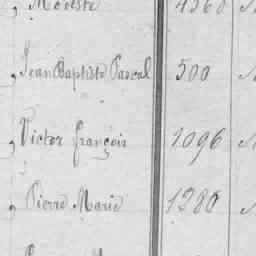 , Modeste 4560
, Jean Baptiste Pascal 500
, Victor françois 1096
, Pierre Marie 1280